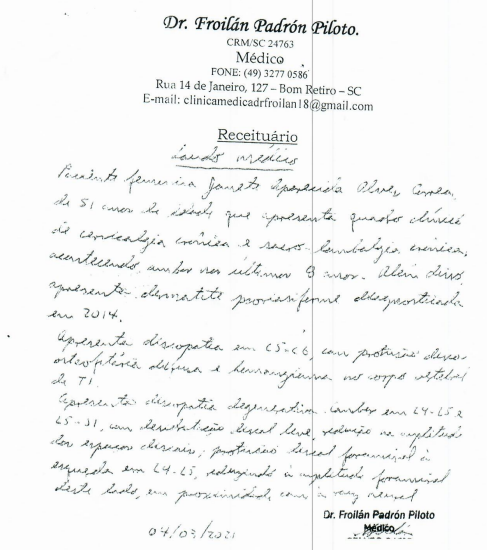 Dr. Froilán Padrón Piloto.
CRM/SC 24763
Médico
FONE: (49) 3277 0586
Rua 14 de Janeiro, 127 – Bom Retiro – SC
E-mail: clinicamedicadrfroilan18@gmail.com
Receituário
Laudo médico
Paciente Janete Aparecida Alves Correa,
de 51 anos de idade que apresenta quadro clínico
de cervicalgia crônica e sacro-lombalgia crônica,
acontecendo ambas nos últimos 9 anos. Além disso,
apresenta dermatite psoriasiforme diagnosticada
em 2014.
Apresenta discopatia em C5-C6, com protusão disco-
osteofitária difusa e hemangioma no corpo vertebral
de T1.
Apresenta discopatia degenerativa lombar em L4-L5 e
L5-S1, com desidratação discal leve, redução na amplitude
dos espaços discais, protusão discal foraminal à
esquerda em L4-L5, reduzindo a amplitude foraminal
deste lado, em proximidade com a raiz neural
04/03/2021
Dr. Froilán Padrón Piloto
Médico